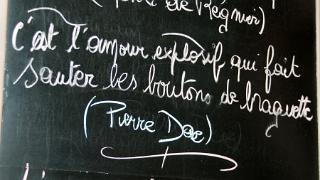 de Régnier)
C'est l'amour explosif qui fait
sauter les boutons de braguette
(Pierre Dac)